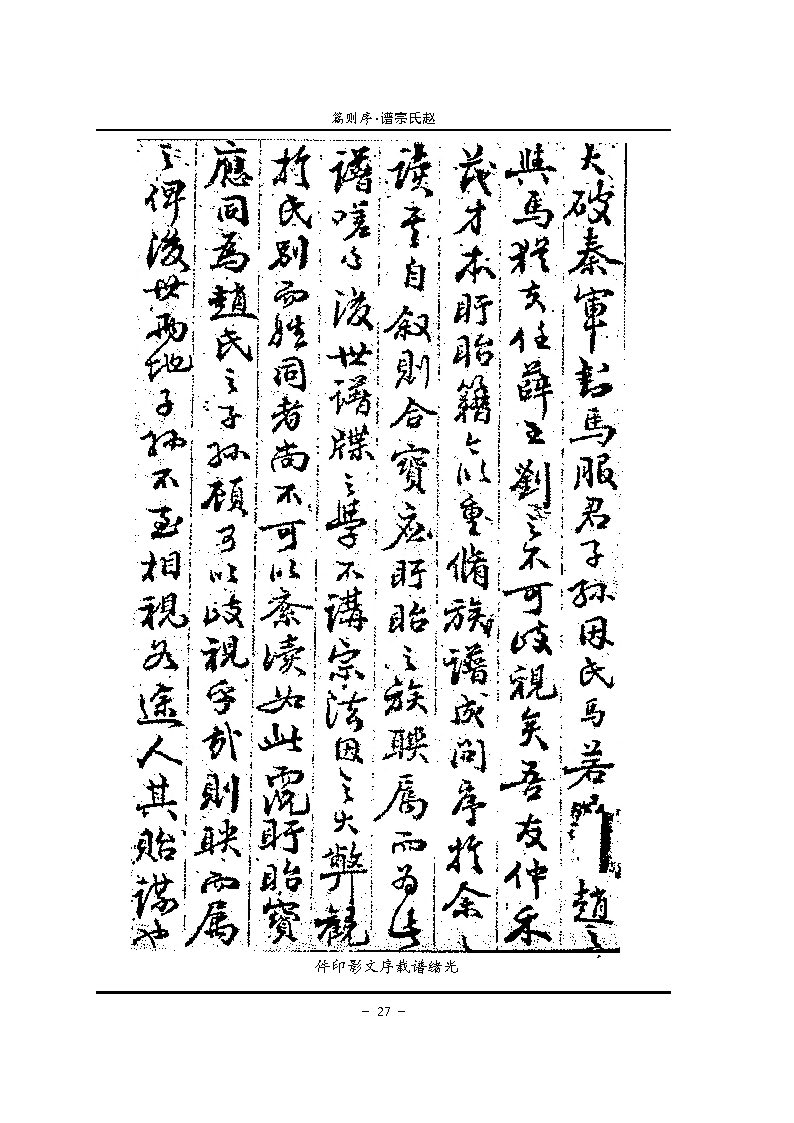 赵氏宗谱·序则篇
大破秦軍封馬服君子孫因氏馬若 趙之
與馬猶文任薛王劉之不可歧視矣吾友仲禾
茂才本盱眙籍今以重脩族譜成問序於余之
读其自叙則合寶應盱眙之族聯属而為此
譜嗟乎後世譜牒之學不講宗法因之大弊觀
於氏別而姓同者尚不可以紊瀆如此況盱眙寶
應同為趙氏之子孫顧可以歧視乎哉則聯而属
之俾後世兩地子孫不至相視為途人其貽謀也
光绪谱载序文影印件
- 27 -